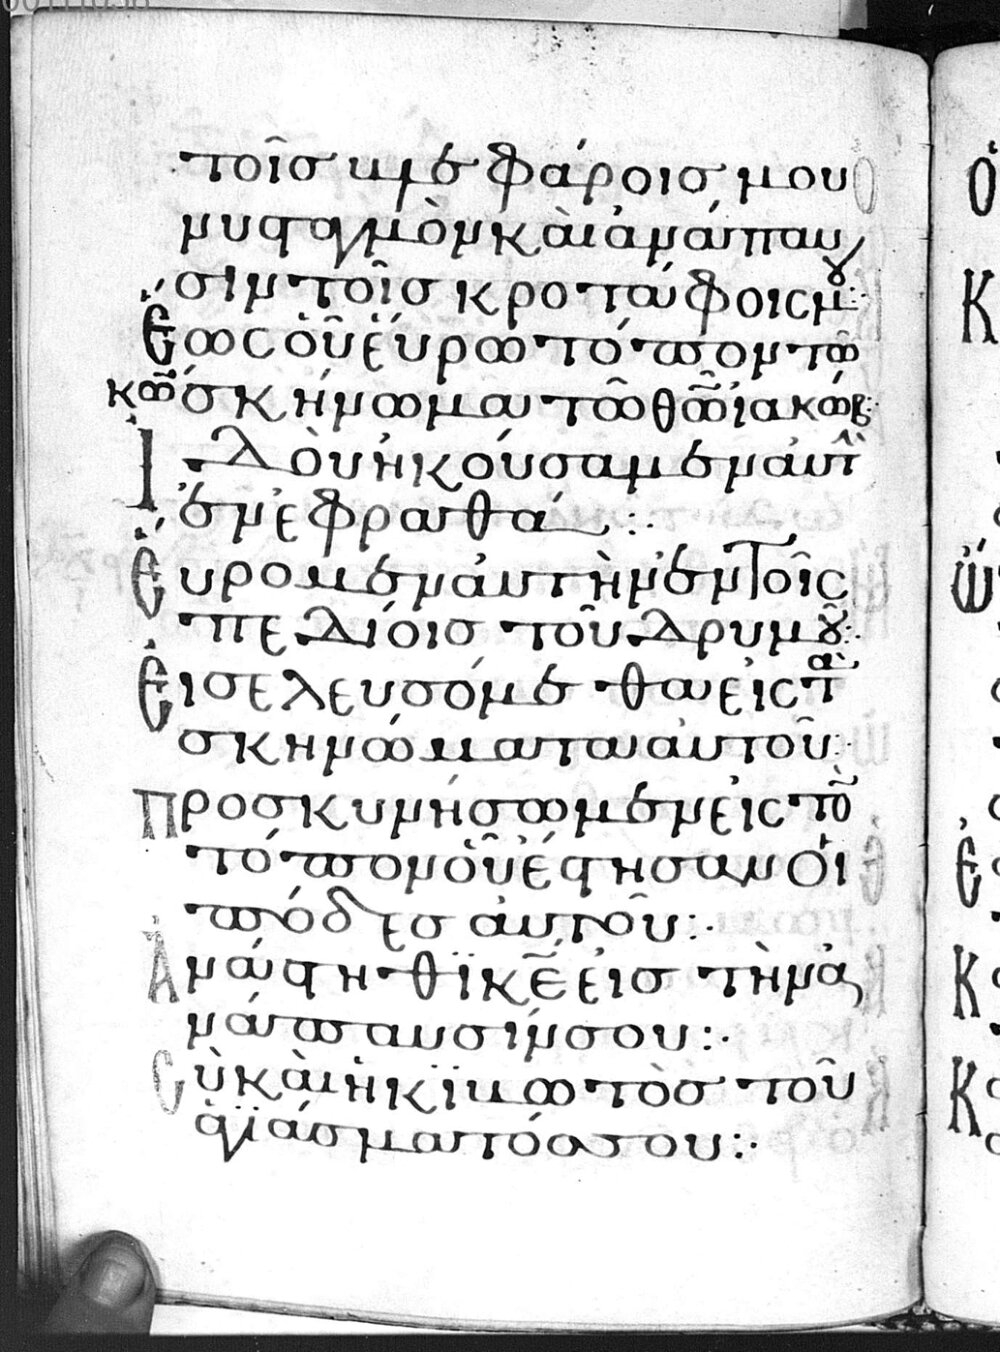 τοῖσ κμὲ φάροισ μου
νυσταγμὸν καὶ ἀνάπαυ
σιν τοῖσ κροτάφοισ μου:
Ἕωσ οὗ εὕρω τόπον τῶ
κω σκήνωμα τῶ θῶ ἰακώβ:
Ἰδοὺ ἠκούσαμεν αὐτὴ
ἐν εφραθά:.
Εὕρομεν αὐτὴν ἐν τοῖσ
πεδίοισ τοῦ δρυμοῦ:.
Εἰσελευσόμεθα εἰσ τὰ
σκηνώματα αὐτοῦ:.
Προσκυνήσωμεν εἰσ τὸ
τόπον οὗ ἔστησαν οἱ
πόδεσ αὐτοῦ:.
Ἀνάστηθϊ κε εἰσ τὴν ἀ
νάπαυσίν σου:.
Σὺ καὶ ἡ κϊβωτὸσ τοῦ
ἁγϊάσματόσ σου:.